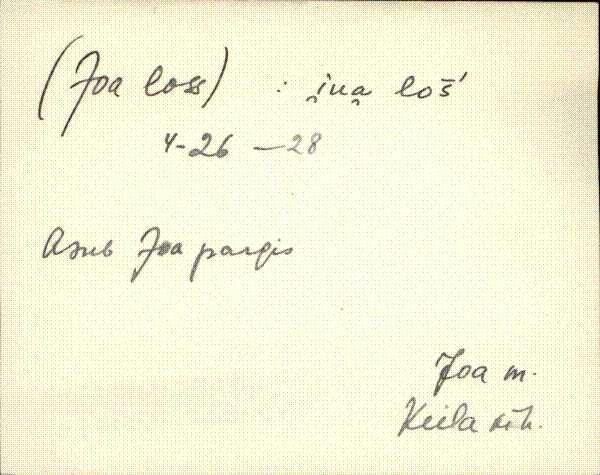 (Joa loss) : i̯ua̯ loš'
4-26 — 28
Asub Joa pargis
Joa m.
Keila khk.